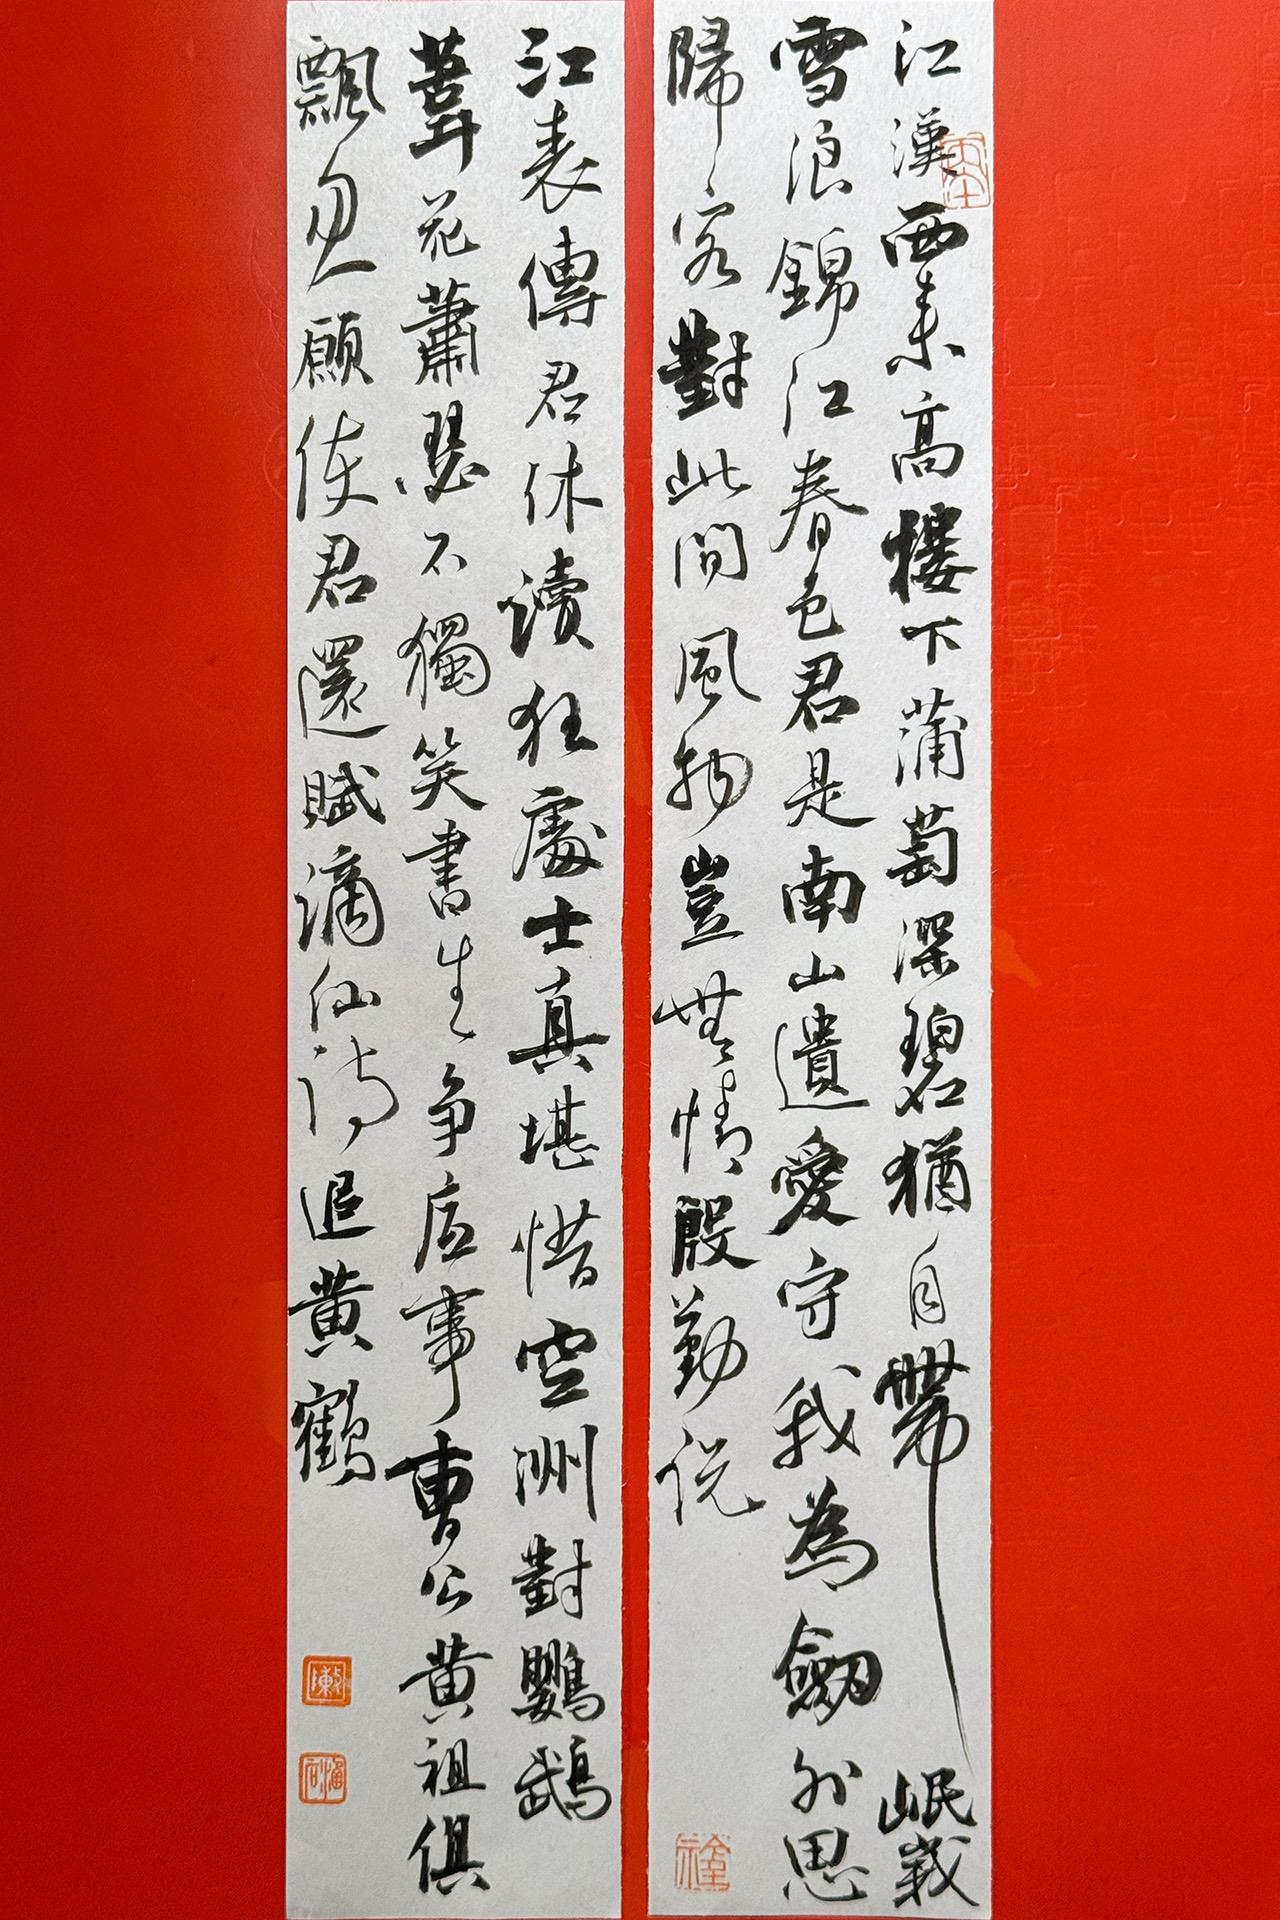 江漢西来高樓下蒲萄深碧猶自帶岷峩
雪浪錦江春色君是南山遺愛守我為劔外思
歸客對此間風物豈無情殷勤説
江表傳君休讀狂處士真堪惜空洲對鸚鵡
葦花蕭瑟不獨笑書生争底事曹公黄祖俱
飄忽願使君還賦謫仙詩追黄鶴